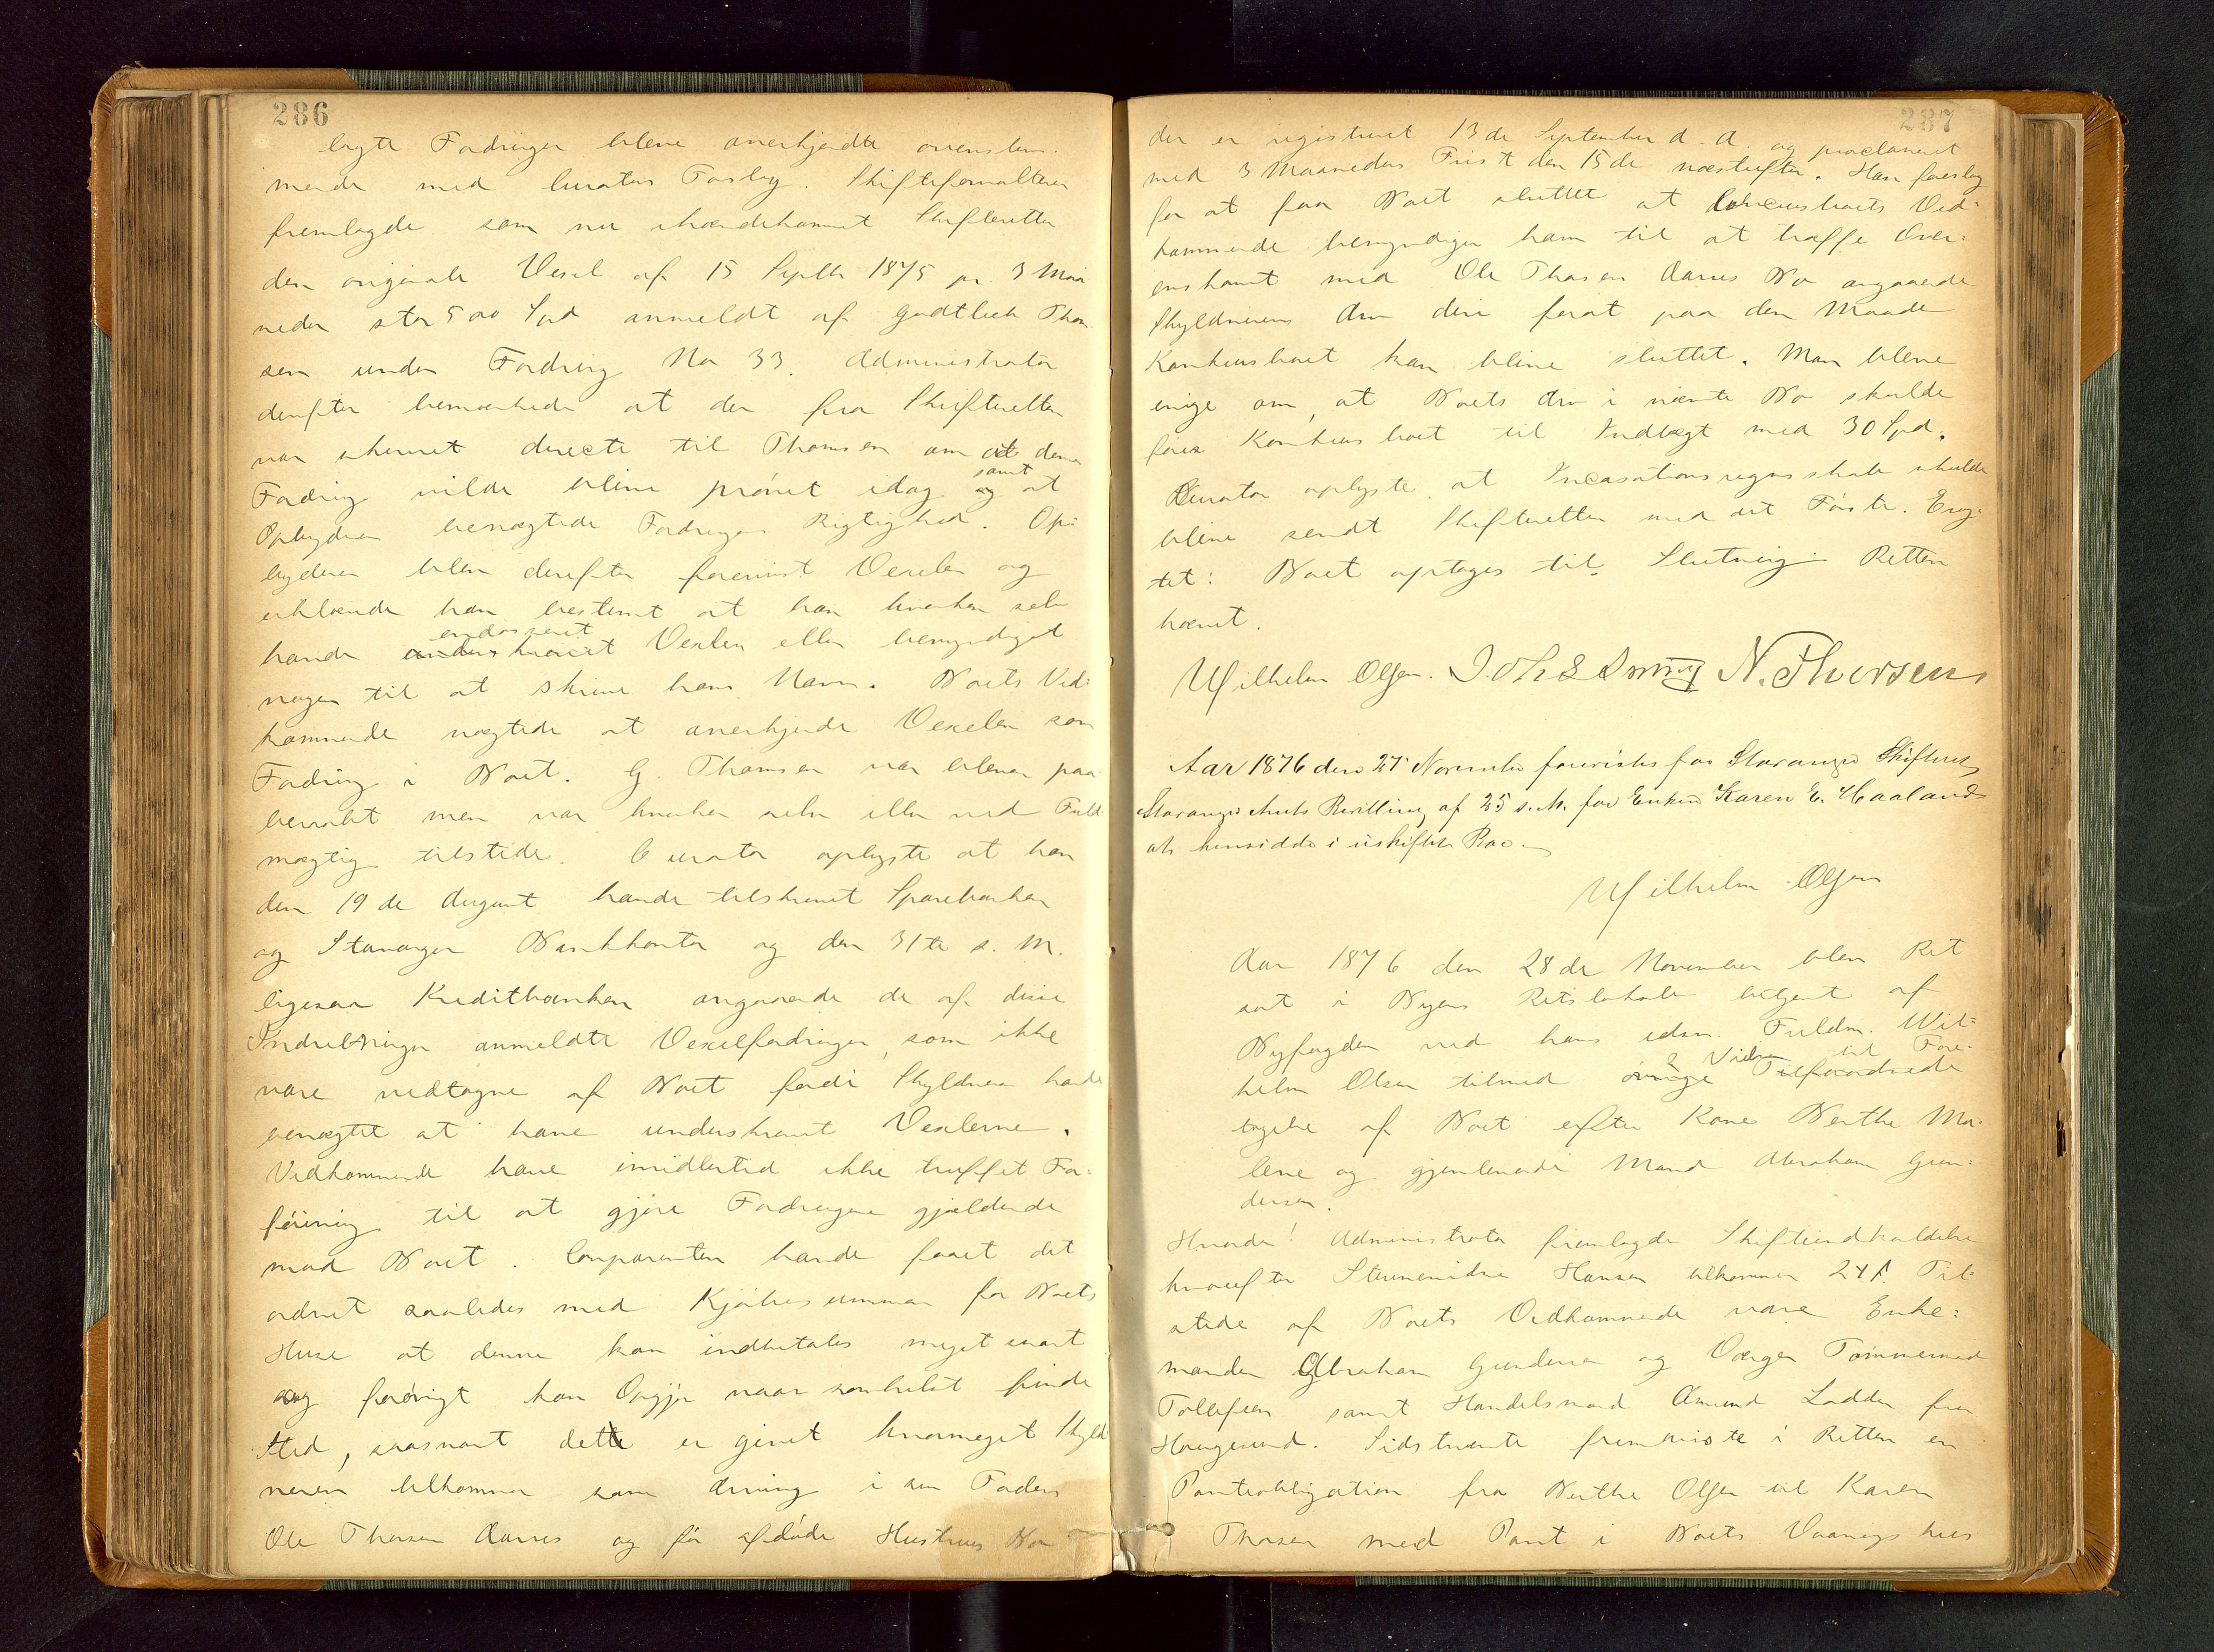 286
lagte Fordringer bleve anerkjendte overenstem-
mende med Curators Forslag. Skifteforvalteren
fremlagde som nu ihændekommet Skifteretten
den originale Vexel af 15 Septbr 1875 pr. 3 Maa
neder stor 500 Spd anmeldt af Godtlieb Thom-
sen under Fordring No 33. Administrator
derefter bemærkede at der fra Skifteretten
var skrevet directe til Thomsen om at denne
Fordring vilde blive prøvet idag samt at
Opbyderen benægtede Fordringens Rigtighed. Op-
byderen blev derefter forevist Vexelen og
erklærede han bestemt at han hverken selv
havde endosseret Vexlen eller bemyndiget
nogen til at skrive hans Navn. Boets Ved-
kommende nægtede at anerkjende Vexelen som
Fordring i Boet. G. Thomsen var bleven paa
beraabt men var hverken selv eller ved Fuld
mægtig tilstede. Curator oplyste at han
den 19de August havde tilskrevet Sparebanken
og Stavanger Bankkontor og den 31te s. M.
ligesaa Kreditbanken angaaende de af disse
Indretninger anmeldte Vexelfordringer, som ikke
vare vedtagne af Boet fordi Skyldneren havde
benægtet at have underskrevet Vexlerne.
Vedkommende have imidlertid ikke truffet For-
føining til at gjøre Fordringene gjældende
mod Boet. Comparenten havde faaet det
ordnet saaledes med Kjøbesummen for Boets
Huse at denne kan indbetales meget snart
og forøvrigt kan Opgjør naar somhelst finde
Sted, saasnart dette er givet hvormeget Skyld
neren tilkommer som Arving i sin Faders
Ole Thorsen Aarres og før afdøde Hustrues Bo
287
der er registreret 13de September d. A. og proclameret
med 3 Maaneders Frist den 15de næstefter. Han foreslog
for at faa Boet sluttet at Concursboets Ved-
kommende bemyndiger ham til at træffe Over-
enskomst med Ole Thorsen Aarres Bo angaaende
Skyldnerens Arv deri forat paa den Maade
Konkursboet kan blive sluttet. Man bleve
enige om, at Boets Arv i nævnte Bo skulde
føres Konkursboet til Indtægt med 30 Spd.
Curator oplyste at Incassationsregnskab skulde
blive sendt Skifteretten med det Første. Erag-
tet: Boet optages til Slutning. Retten
hævet.
Wilhelm Olsen. N. Thorsen
Aar 1876 den 27 November forevistes for Stavanger Skifteret
Stavanger Amts Bevilling af 25 s. M. for Enken Karen E. Haaland
at hensidde i uskiftet Bo.
Wilhelm Olsen
Aar 1876 den 28de November blev Ret
sat i Byens Retslokale betjent af
Byfogden ved hans edsv. Fuldm. Wil-
helm Olsen tilmed 2 Vidner til Fore-
tagelse af Boet efter Kone Berthe Ma-
lene og gjenlevende Mand Abraham Gun-
dersen.
Hvorda! Administrator fremlagde Skifteindkaldelse
hvorefter Stevnevidne Hansen tilkommer 24 s. Til-
stede af Boets Vedkommende vare Enke-
manden Abraham Gundersen og Værgen Tømmermand
Tollefsen samt Handelsmand Amund Lodden fra
Haugesund. Sidstnævnte fremviste i Retten en
Panteobligation fra Berthe Olsen til Karen
Thorsen med Pant i Boets Vaaningshus